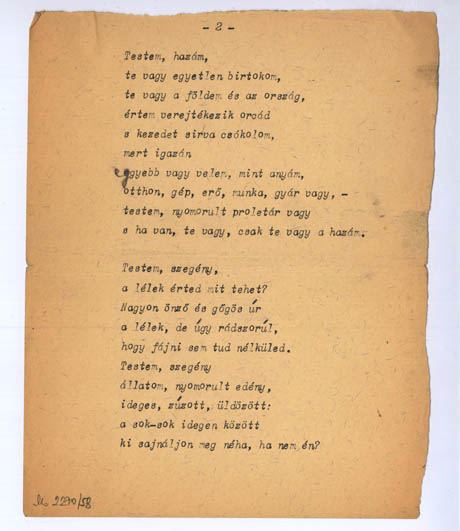 - 2 -
Testem, hazám,
te vagy egyetlen birtokom,
te vagy a földem és az ország,
értem verejtékezik orcád
s kezedet sirva csókolom,
mert igazán
egyebb vagy velem, mint anyám,
otthon, gép, erő, munka, gyár vagy, -
testem, nyomorult proletár vagy
s ha van, te vagy, csak te vagy a hazám.
Testem, szegény,
a lélek érted mit tehet?
Nagyon önző és gőgös úr
a lélek, de úgy rádszorúl,
hogy fájni sem tud nélküled.
Testem, szegény
állatom, nyomorult edény,
ideges, zúzott, üldözött:
a sok-sok idegen között
ki sajnáljon meg néha, ha nem én?
2270/58